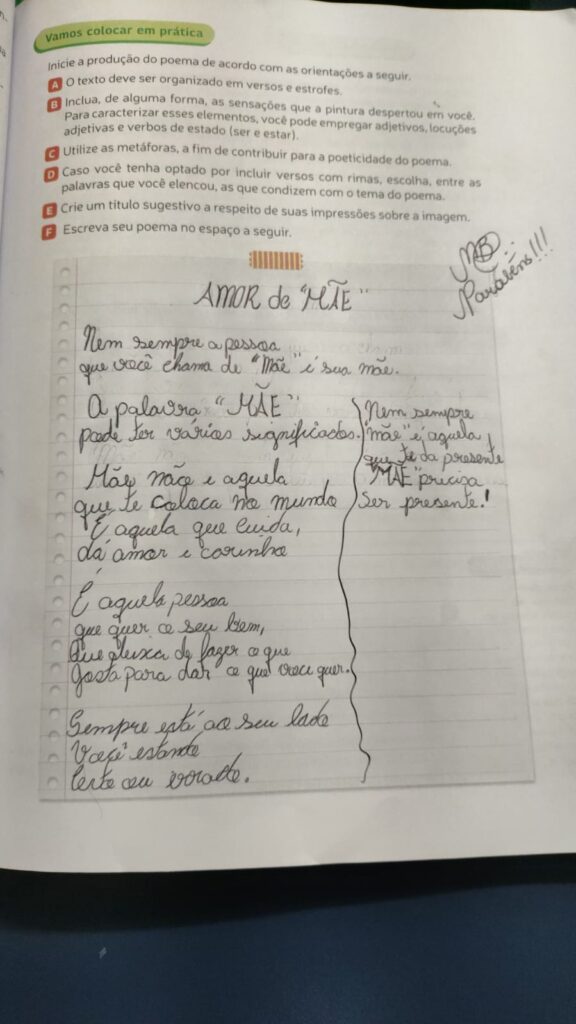 Vamos colocar em prática
Inicie a produção do poema de acordo com as orientações a seguir.
A O texto deve ser organizado em versos e estrofes.
B Inclua, de alguma forma, as sensações que a pintura despertou em você.
Para caracterizar esses elementos, você pode empregar adjetivos, locuções
adjetivas e verbos de estado (ser e estar).
C Utilize as metáforas, a fim de contribuir para a poeticidade do poema.
D Caso você tenha optado por incluir versos com rimas, escolha, entre as
palavras que você elencou, as que condizem com o tema do poema.
E Crie um título sugestivo a respeito de suas impressões sobre a imagem.
F Escreva seu poema no espaço a seguir.
MB
Parabéns!!!
AMOR de "MÃE"
Nem sempre a pessoa
que você chama de "Mãe" é sua mãe.
A palavra "MÃE"
pode ter vários significados.
Mãe não é aquela
que te coloca no mundo
É aquela que cuida,
dá amor e carinho
É aquela pessoa
que quer o seu bem,
Que deixa de fazer o que
gosta para dar o que você quer.
Sempre está ao seu lado
Você estando
certo ou errado.
Nem sempre
"mãe" é aquela
que te da presente
"MÃE" precisa
ser presente!